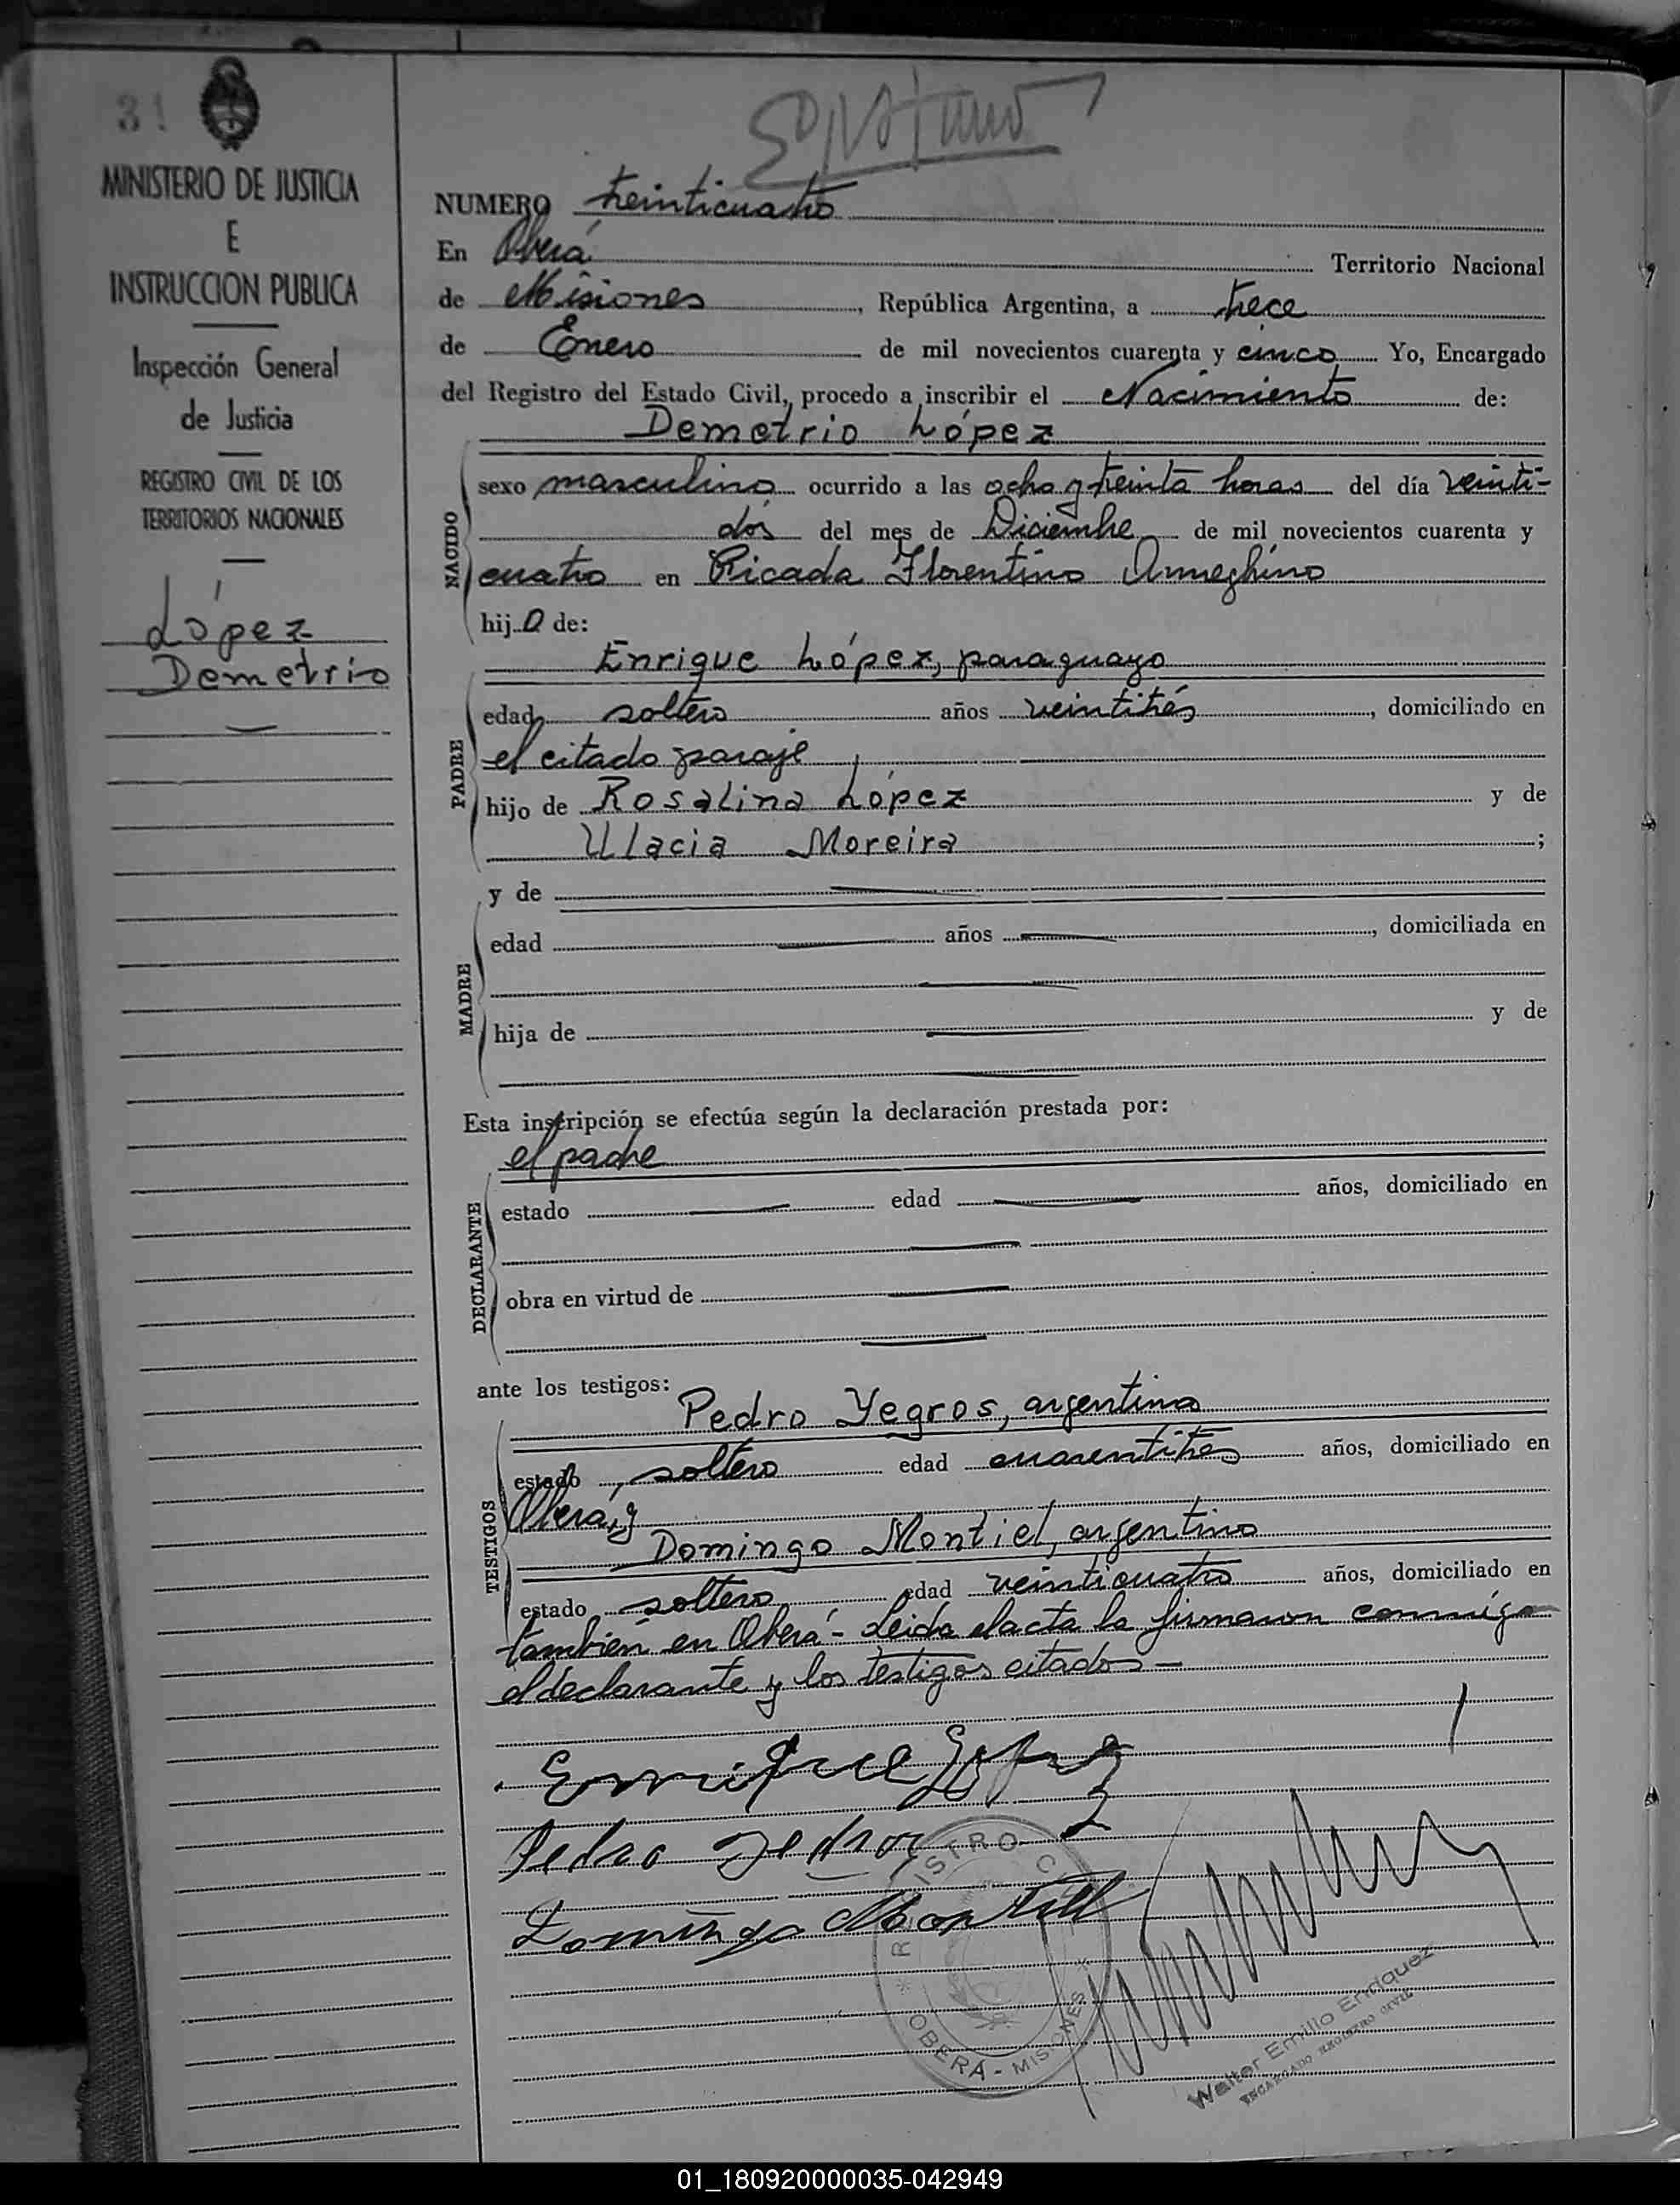 31
MINISTERIO DE JUSTICIA
E
INSTRUCCION PUBLICA
Inspección General
de Justicia
REGISTRO CIVIL DE LOS
TERRITORIOS NACIONALES
López
Demetrio
NUMERO treinticuatro
En Oberá Territorio Nacional
de Misiones, República Argentina, a trece
de Enero de mil novecientos cuarenta y cinco Yo, Encargado
del Registro del Estado Civil, procedo a inscribir el Nacimiento de:
Demetrio López
NACIDO
sexo masculino ocurrido a las ocho y treinta horas del día veinti-
dós del mes de Diciembre de mil novecientos cuarenta y
cuatro en Picada Florentino Ameghino
hijo de:
Enrique López, paraguayo
PADRE
edad soltero años veintitrés, domiciliado en
el citado paraje,
hijo de Rosalina López y de
Ulacia Moreira;
y de
MADRE
edad años, domiciliada en
hija de y de
Esta inscripción se efectúa según la declaración prestada por:
el padre
DECLARANTE
estado edad años, domiciliado en
obra en virtud de
ante los testigos:
Pedro Yegros, argentino
TESTIGOS
estado, soltero edad cuarentitres años, domiciliado en
Oberá, y
Domingo Montiel, argentino
estado soltero edad veinticuatro años, domiciliado en
también en Oberá - Leida el acta la firmaron conmigo
el declarante y los testigos citados -
Enrique López
Pedro Yegros
Domingo Montiel
REGISTRO CIVIL
OBERÁ - MISIONES
Walter Emilio Enriquez
ENCARGADO REGISTRO CIVIL
01_180920000035-042949